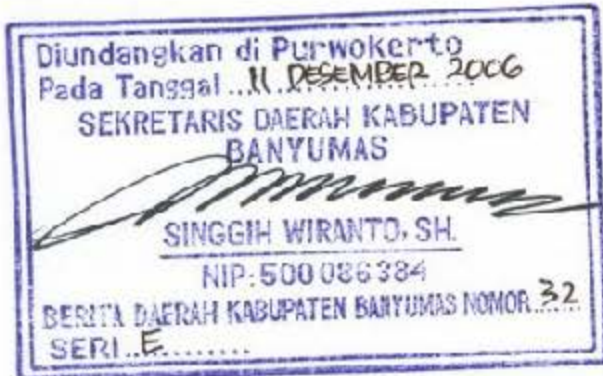 Diundangkan di Purwokerto
Pada Tanggal ...11 DESEMBER 2006
SEKRETARIS DAERAH KABUPATEN
BANYUMAS
SINGGIH WIRANTO, SH.
NIP. 500086384
BERITA DAERAH KABUPATEN BANYUMAS NOMOR 32
SERI..E.........